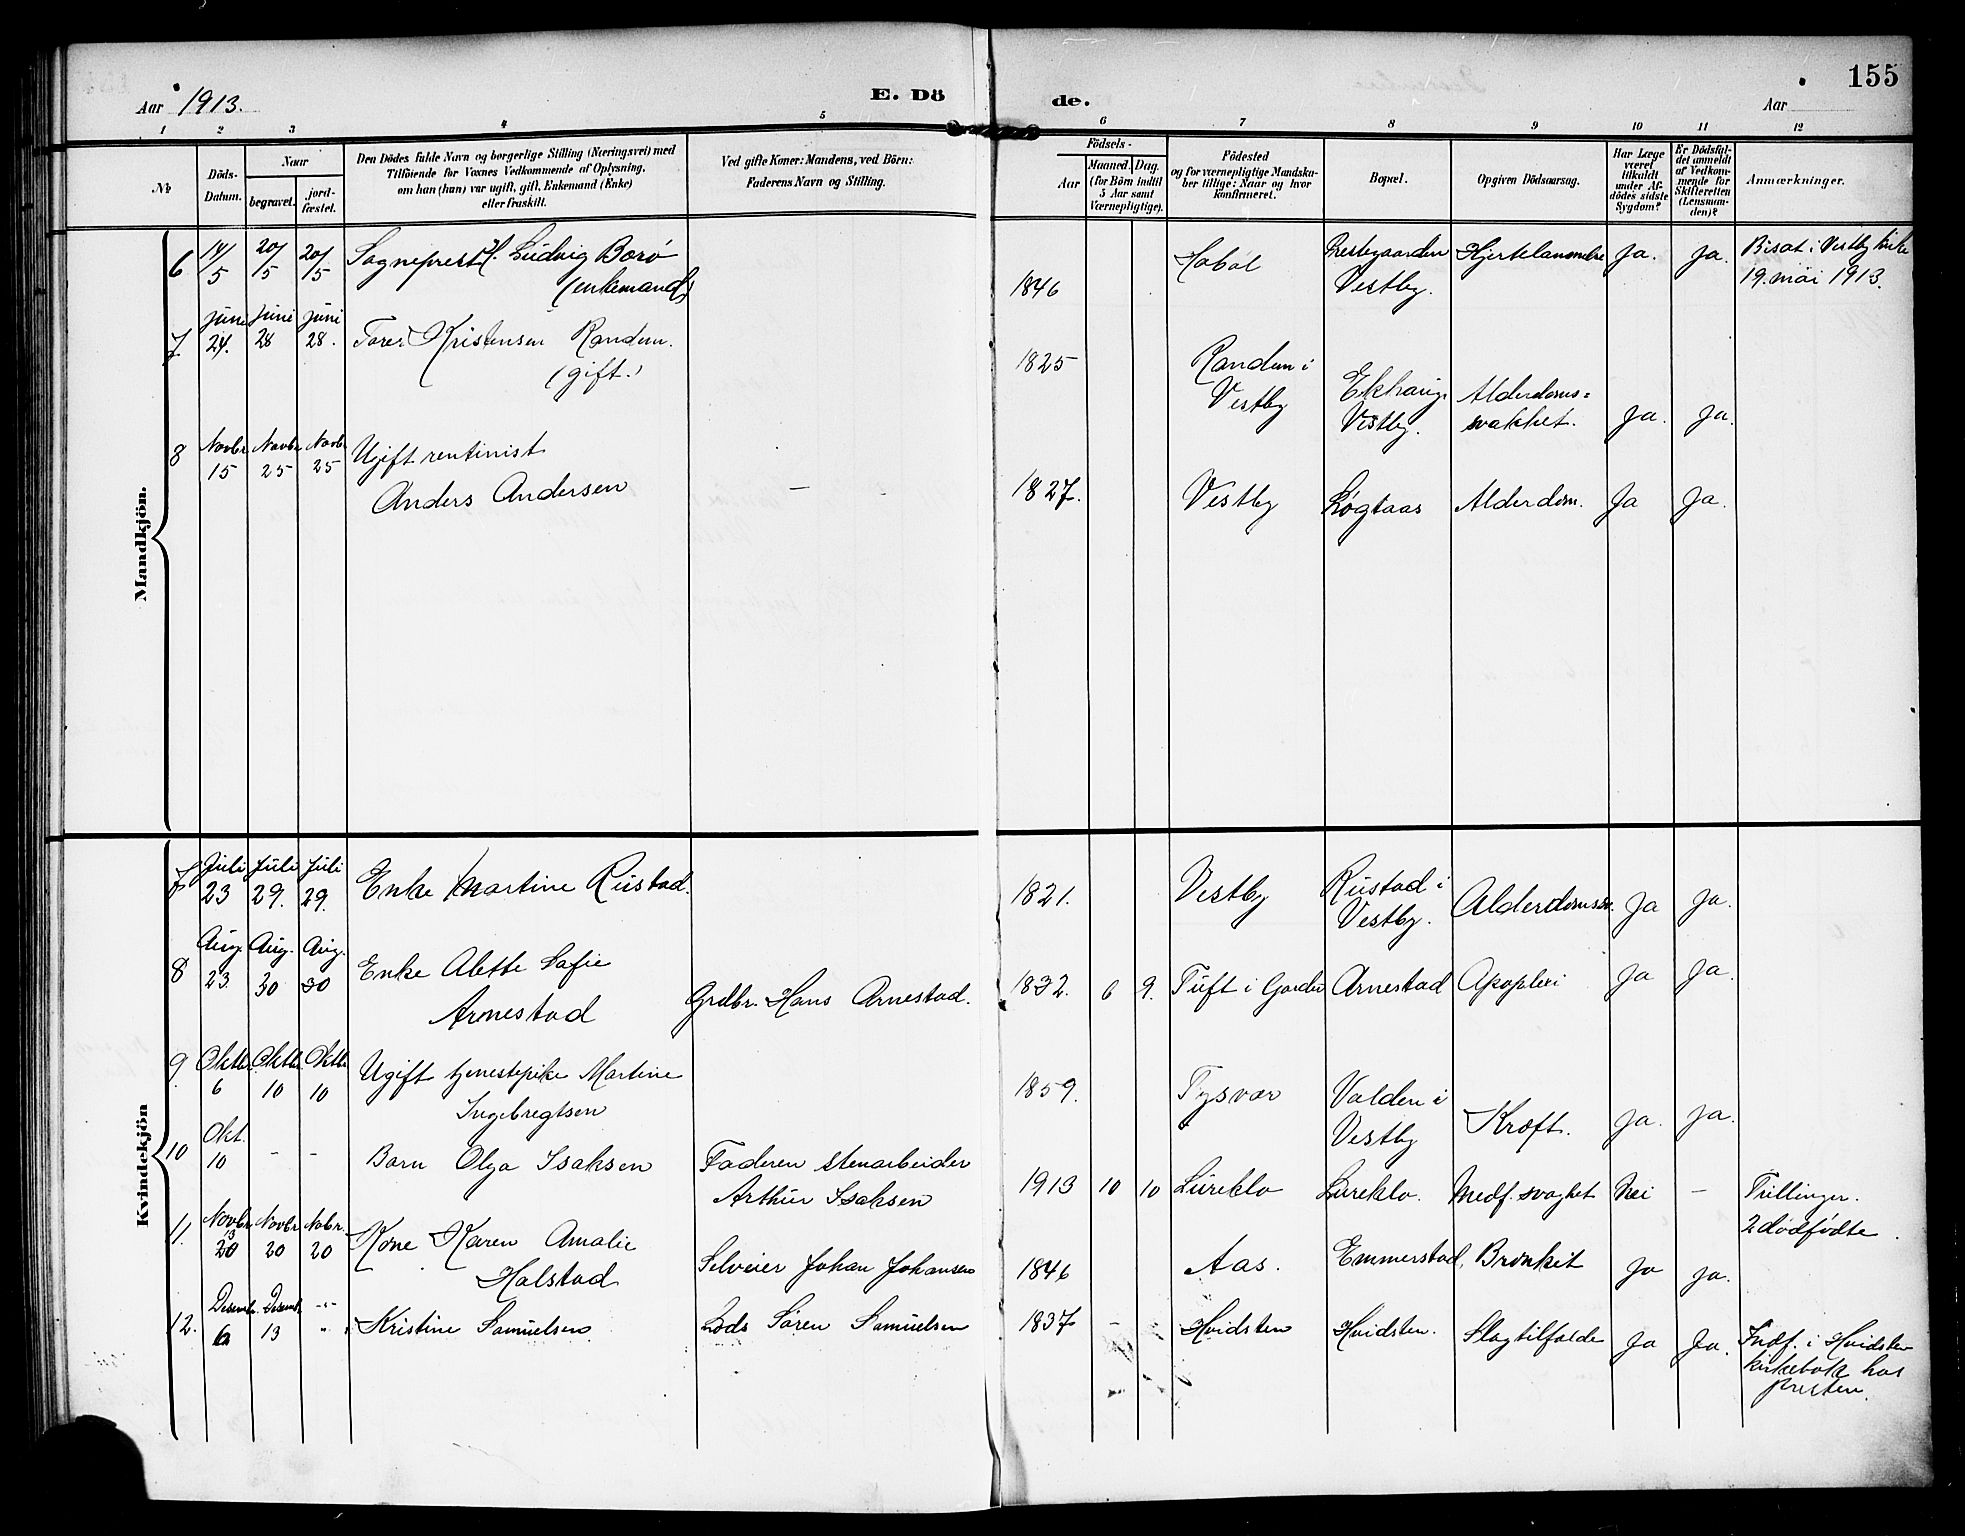 Aar 1913.
E. Dö
de.
155
Aar
1 2 3 4 5 6 7 8 9 10 11 12
No
Döds-
Datum.
Naar
begravet.
jord-
fæstet.
Den Dödes fulde Navn og borgerlige Stilling (Næringsvei) med
Tilföiende for Voxnes Vedkommende af Oplysning,
om han (hun) var ugift, gift, Enkemand (Enke)
eller fraskilt.
Ved gifte Koner: Mandens, ved Börn:
Faderens Navn og Stilling.
Födsels-
Aar
Maaned. Dag.
(for Börn indtil
5 Aar samt
Værnepligtige).
Födested
og for værnepligtige Mandska-
ber tillige: Naar og hvor
konfirmeret.
Bopæl.
Opgiven Dödsaarsag.
Har Læge
været
tilkaldt
under Af-
dödes sidste
Sygdom?
Er Dödsfal-
det anmeldt
af Vedkom-
mende for
Skifteretten
(Lensman-
den)?
Anmærkninger.
Mandkjön.
6 14/5 20/5 20/5 Sogneprest H. Ludvig Borø
(enkemand)
1846 Hobøl Prestegaarden
Vestby. Hjertelammelse Ja. Ja. Bisat i Vestby kirke
19. mai 1913.
7 Juni
24. Juni
28 Juni
28. Tarer Kristensen Randem.
(gift.)
1825 Randem i
Vestby Ekhaug.
Vestby. Alderdoms=
svakhet. Ja. Ja.
8 Novbr
15 Novbr
25 Novbr
25 Ugift rentinist
Anders Andersen –
1827. Vestby Løgtaas Alderdom. Ja Ja.
Kvindekjön
7 Juli
23 Juli
29. Juli
29. Enke Martine Rustad.
1821. Vestby Rustad i
Vestby. Alderdomssv. Ja Ja.
8 Aug.
23 Aug.
30 Aug.
30 Enke Alette Sofie
Arnestad Grdbr. Hans Arnestad.
1832. 6 9. Tuft i Garder Arnestad Apoplexi Ja Ja.
9. Oktbr
6 Oktbr
10 Oktbr
10 Ugift tjenestepike Martine
Ingebregtsen
1859. Tysvær Valden i
Vestby Kræft. Ja. Ja.
10 Okt.
10 – – Barn Olga Isaksen Faderen stenarbeider
Arthur Isaksen
1913 10 10 Lureklo Lureklo. Medf. svaghet Nei – Trillinger.
2 dødfødte.
11. Novbr
13
20 Novbr
20 Nobr.
20 Kone Karen Amalie
Halstad Selveier Johan Johansen
1846 Aas. Emmerstad, Bronkit Ja Ja.
12. Desembr.
6 Desemb.
13 -"-
" Kristine Samuelsen Lods Søren Samuelsen
1837 – - Hvidsten Hvidsten. Slagtilfælde Ja Ja. Indf. i Hvidsten
kirkebok hos
presten.